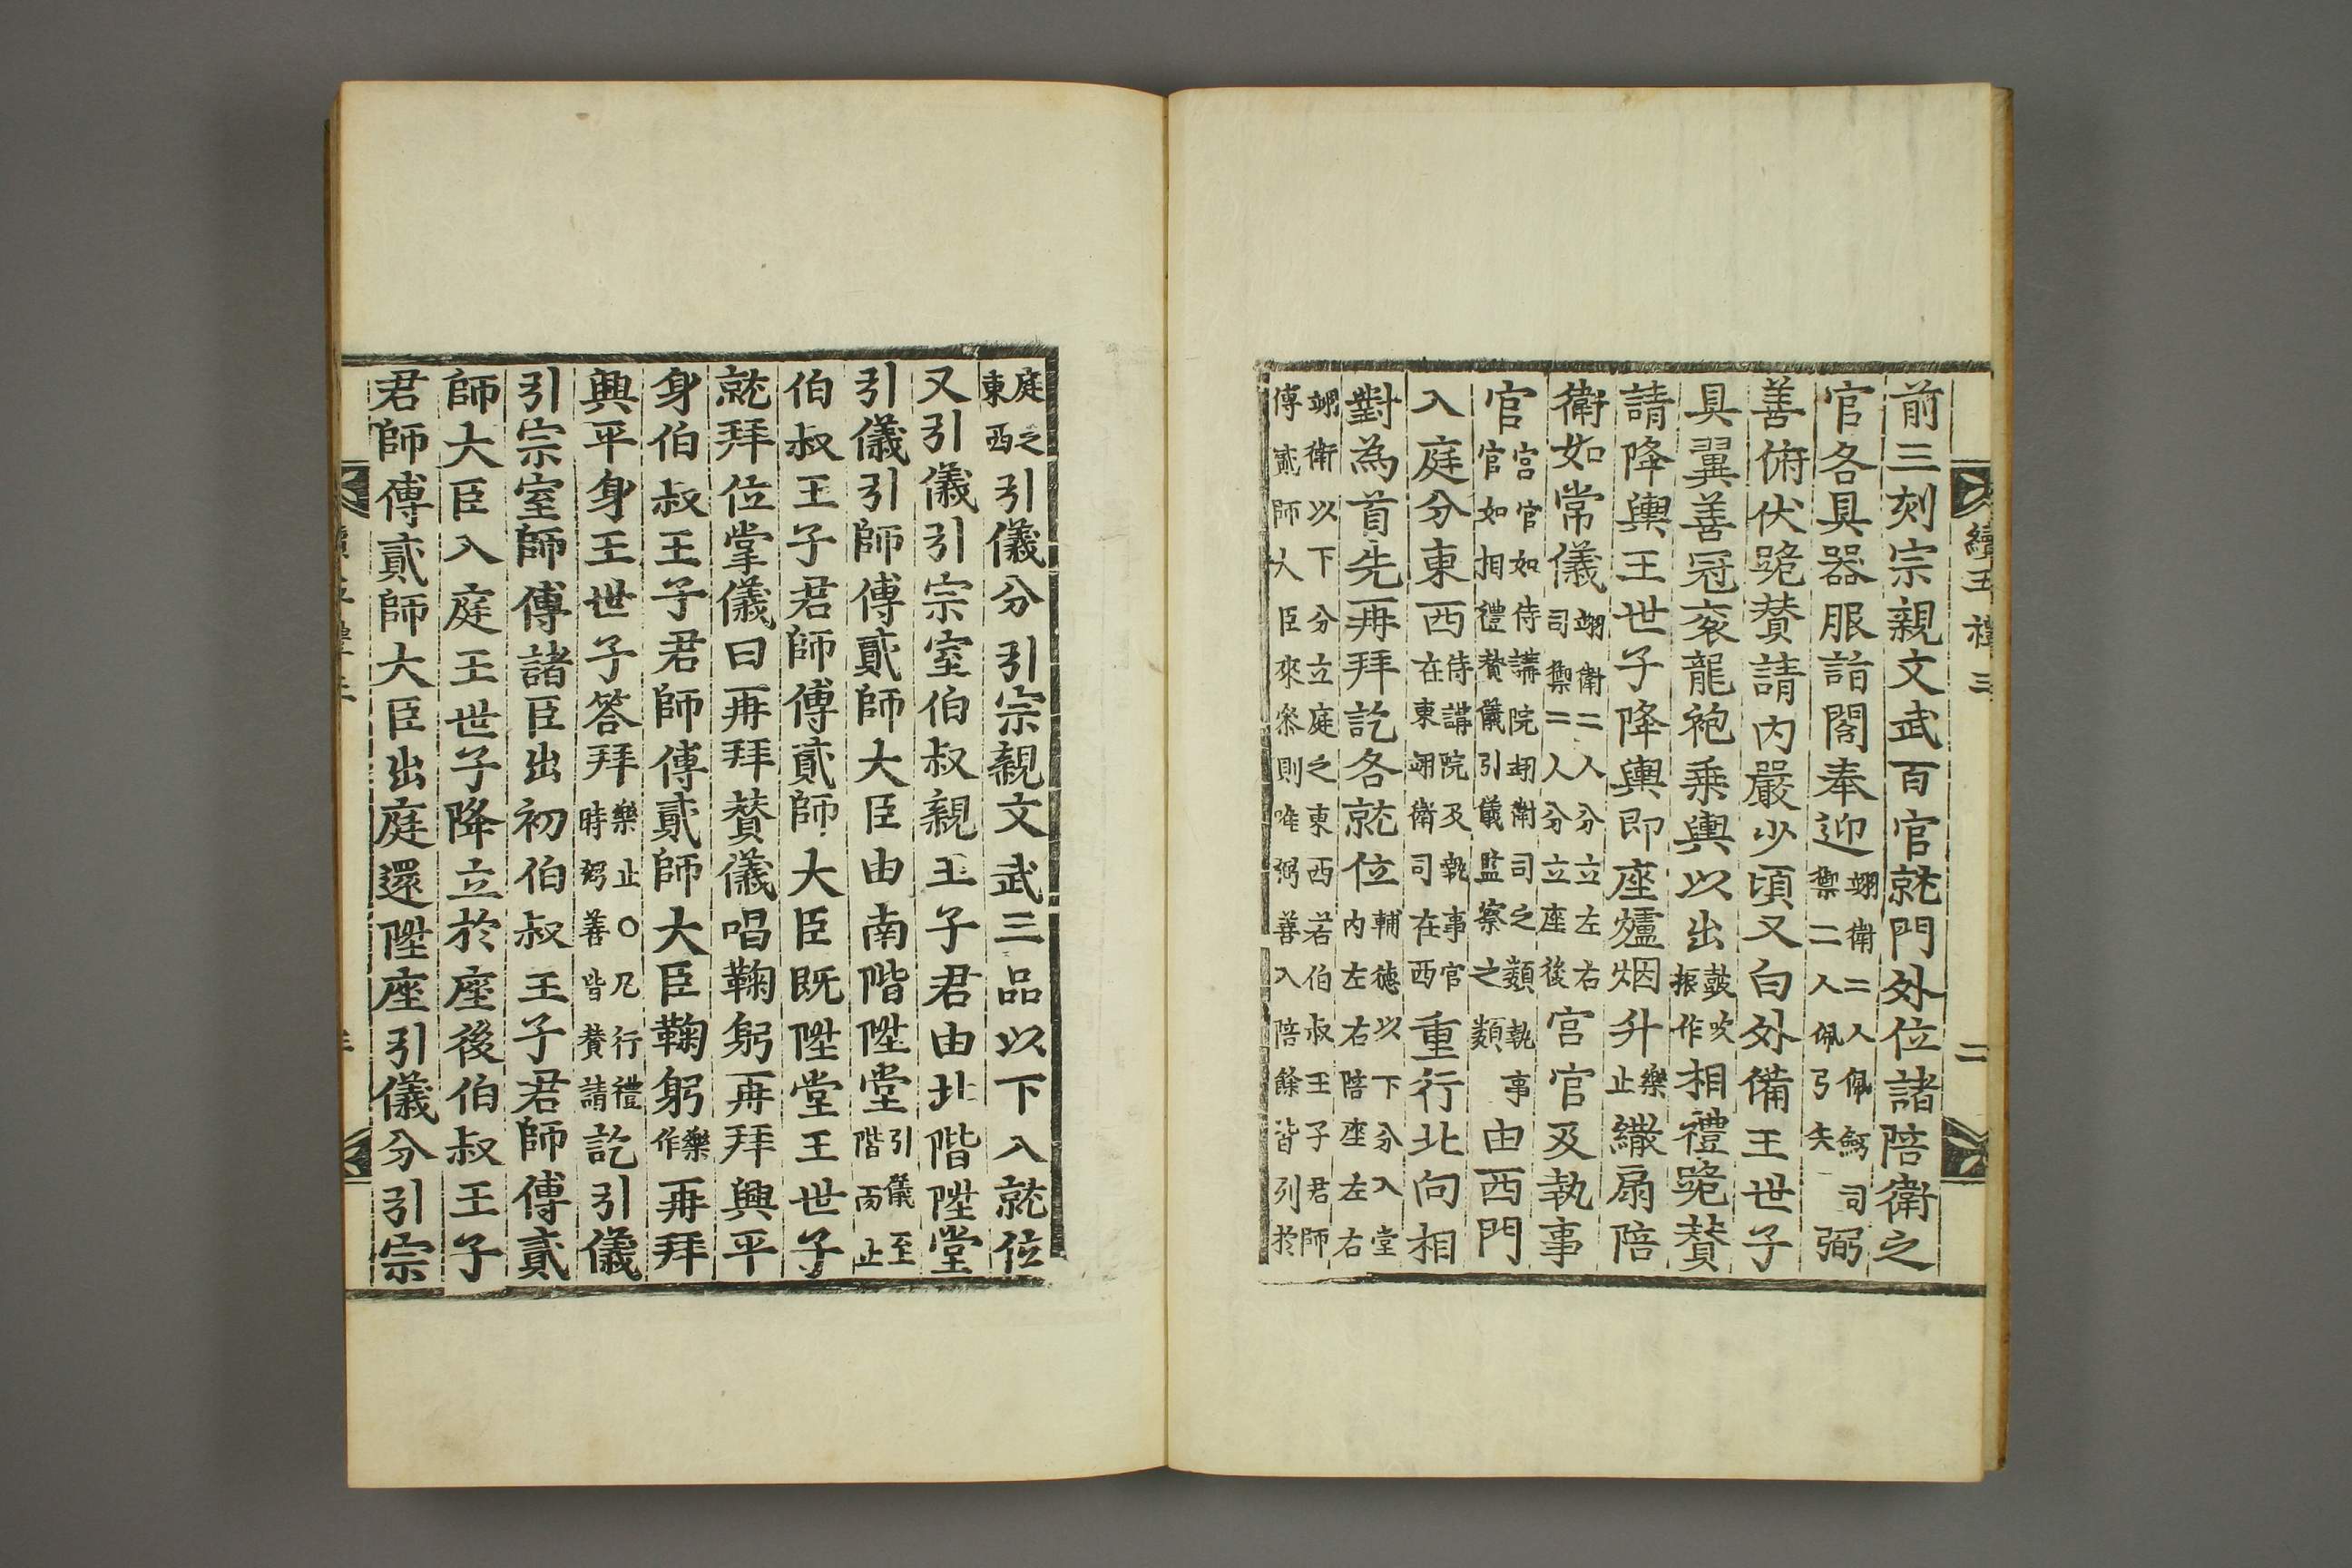 續五禮三
二
前三刻宗親文武百官就門外位諸陪衛之
官各具器服詣閤奉迎翊衛二人佩劒司禦二人佩弓矢弼
善俯伏跪贊請內嚴少頃又白外備王世子
具翼善冠衮龍袍乗輿以出鼓吹振作相禮跪贊
請降輿王世子降輿即座爐烟升樂止繖扇陪
衛如常儀翊衛二人分立左右司禦二人分立座後宮官及執事
官宮官如侍講院翊衛司之類執事官如相禮贊儀引儀監察之類由西門
入庭分東西侍講院及執事官在東翊衛司在西重行北向相
對為首先再拜訖各就位輔德以下分入堂內左右陪座左右
翊衛以下分立庭之東西若伯叔王子君師傅貳師大臣來叅則唯弼善入陪餘皆列於
庭之東西引儀分引宗親文武三品以下入就位
又引儀引宗室伯叔親王子君由北階陞堂
引儀引師傅貳師大臣由南階陞堂引儀至階而止
伯叔王子君師傅貳師大臣既陞堂王世子
就拜位掌儀曰再拜贊儀唱鞠躬再拜興平
身伯叔王子君師傅貳師大臣鞠躬樂作再拜
興平身王世子答拜樂止○凡行禮時弼善皆贊請訖引儀
引宗室師傅諸臣出初伯叔王子君師傅貳
師大臣入庭王世子降立於座後伯叔王子
君師傅貳師大臣出庭還陞座引儀分引宗